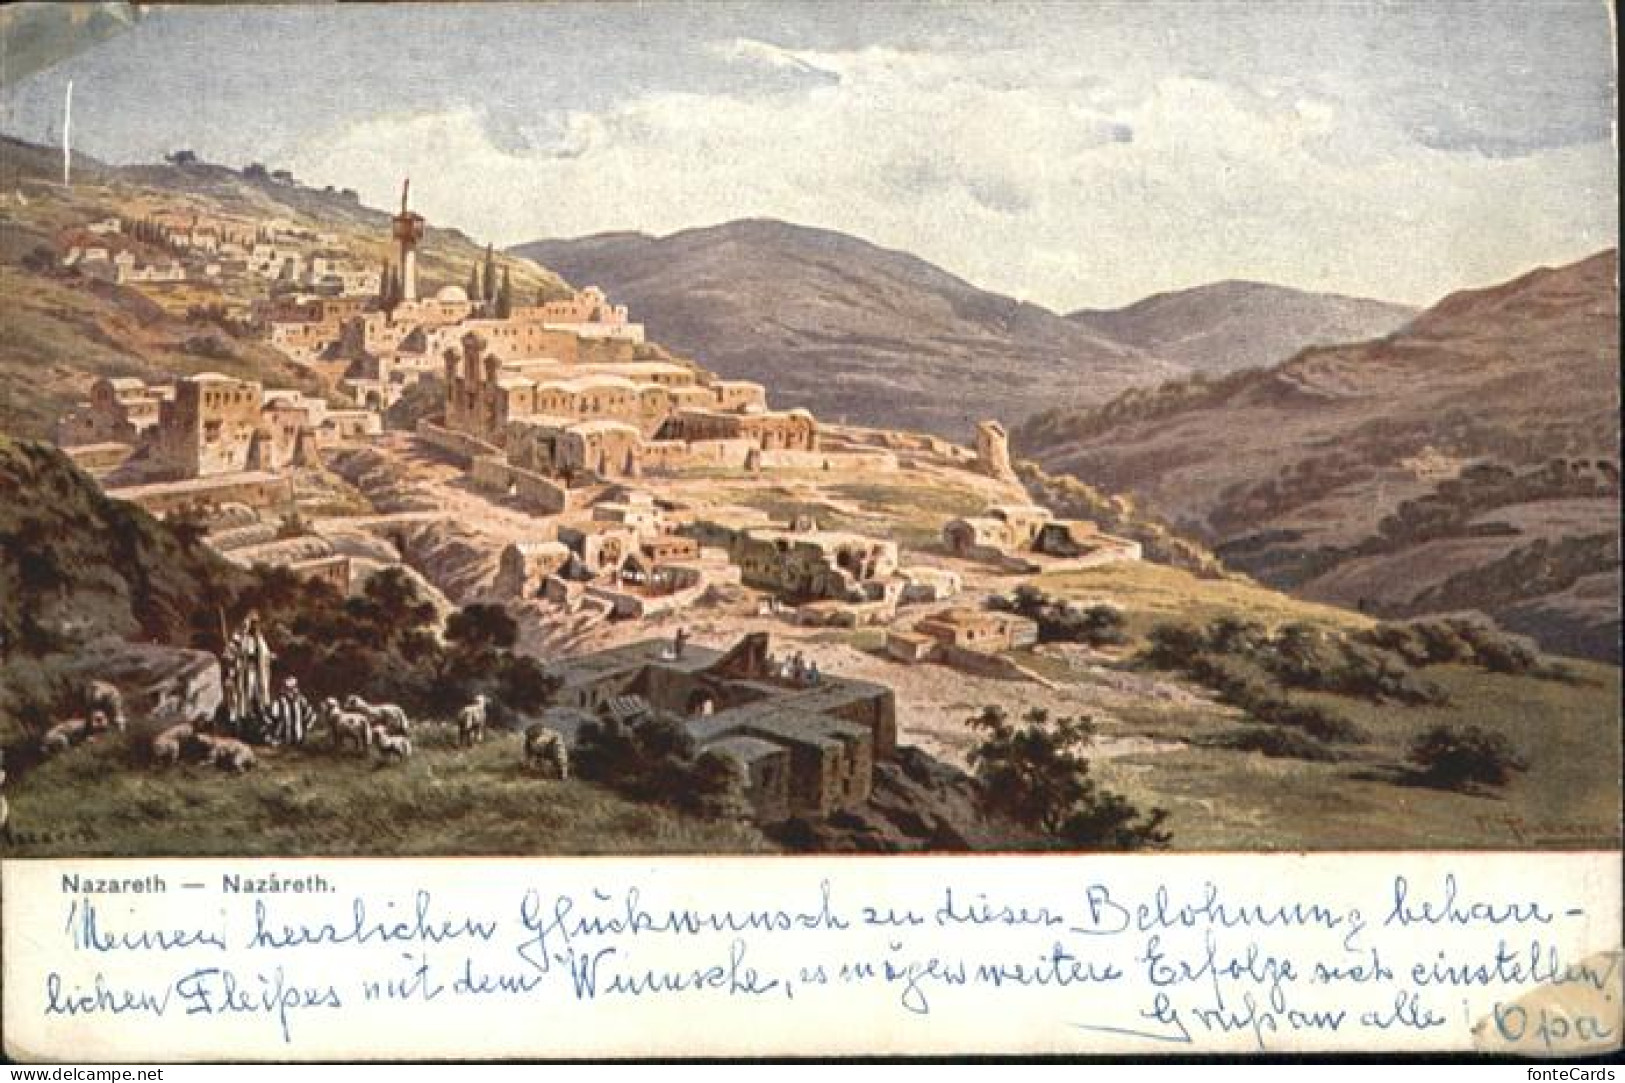 Nazareth — Nazáreth.
Meinen herzlichen Glückwunsch zu dieser Belohnung beharr-
lichen Fleißes mit dem Wunsche, es mögen weitere Erfolge sich einstellen!
Gruß an alle! Opa
www.delcampe.net
fonteCards